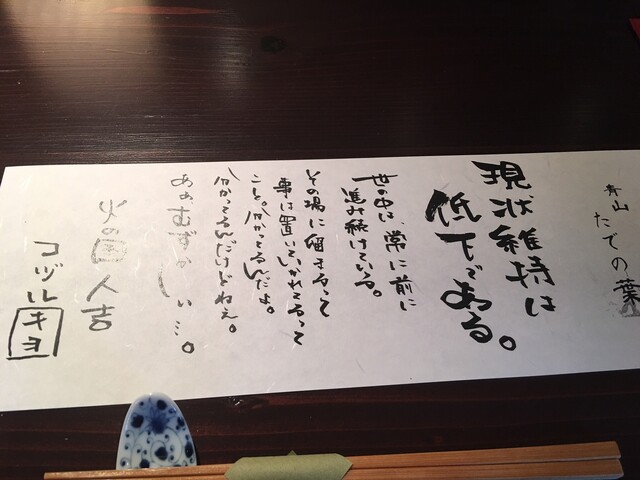 青山
たでの葉
現状維持は
低下である。
世の中は、常に前に
進み続けている。
その場に留まるって
事は置いていかれてるって
こと。分かってるんだよ。
分かってるんだけどねぇ。
あぁむずかしぃ…。
火の国 人吉
コヅル
キヨ